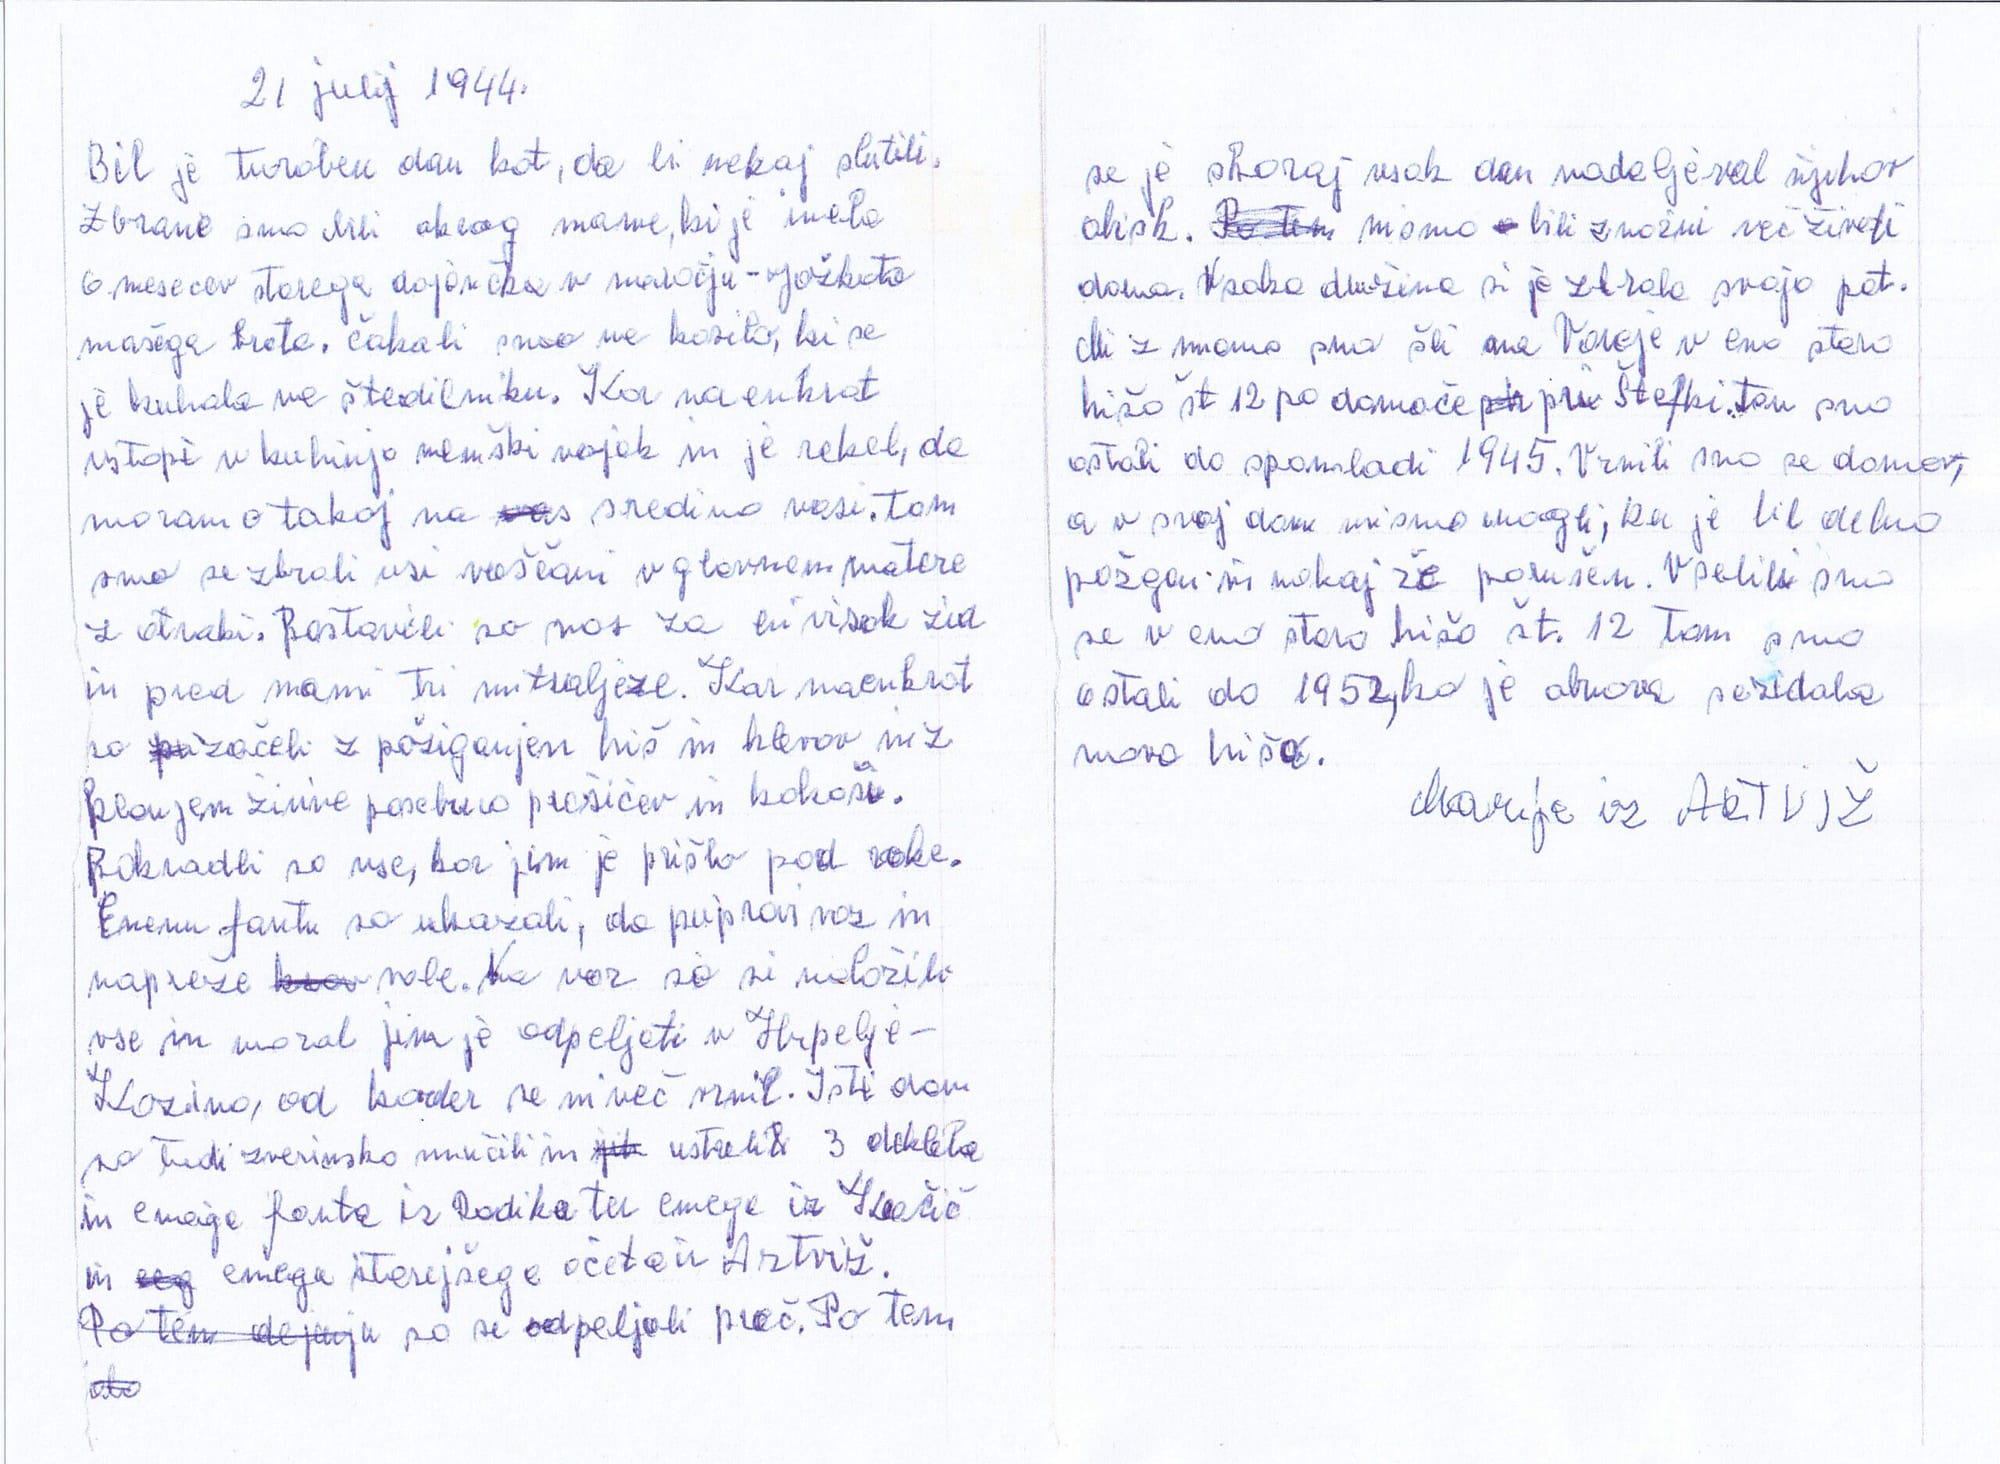 21 julij 1944.
Bil je turoben dan kot, da bi nekaj slutili.
Zbrane smo bili okrog mame, ki je imela
6 mesecev starega dojenčka v naročju - Jožkota
našega brata. čakali smo na kosilo, ki se
je kuhala na štedilniku. Kar naenkrat
vstopi v kuhinjo nemški vojak in je rekel, da
moramo takoj na sredino vasi. Tam
smo se zbrali vsi vaščani v glavnem matere
z otroki. Postavili so nas za en visok zid
in pred nami tri mitraljeze. Kar naenkrat
so začeli z požiganjem hiš in hlevov in z
klanjem živine posebno prašičev in kokoši.
Pokradli so vse, kar jim je prišlo pod roke.
Enemu fantu so ukazali, da pripravi voz in
napreže vole. Na voz so si naložili
vse in moral jim je odpeljati v Hrpelje-
Kozino, od koder se ni več vrnil. Isti dan
so tudi zverinsko mučili in ustrelili 3 dekleta
in enega fanta iz Rodika ter enega iz Kačič
in enega starejšega očeta iz Artviž.
Po tem dejanju so se odpeljali proč. Po tem
se je skoraj vsak dan nadaljeval njihov
obisk. Po tem nismo bili zmožni več živeti
doma. Vsaka družina si je zbrala svojo pot.
Mi z mamo smo šli na Vareje v eno staro
hišo št 12 po domače pri Štefki. Tam smo
ostali do spomladi 1945. Vrnili smo se domov,
a v svoj dom nismo mogli, ker je bil delno
požgan in nekaj že porušen. Vselili smo
se v eno staro hišo št. 12 tam smo
ostali do 1952, ko je obnova sezidala
novo hišo.
Marija iz ARTVIŽ